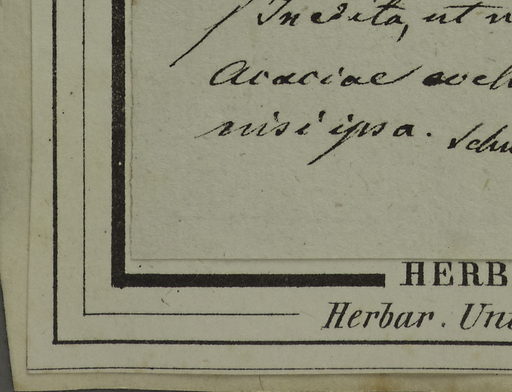 Inedita, ut v
Acaciae
nisi ipsa. Schu
HERB
Herbar. Uni